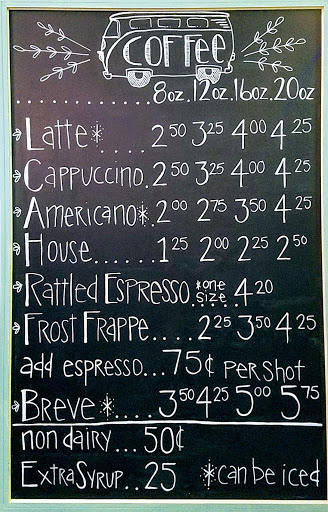 COFFEE
........8oz.12oz.16oz.20oz
Latte*..... 2.50 3.25 4.00 4.25
Cappuccino. 2.50 3.25 4.00 4.25
Americano*. 2.00 2.75 3.50 4.25
House...... 1.25 2.00 2.25 2.50
Rattled Espresso. *one size. 4.20
Frost Frappe.... 2.25 3.50 4.25
add espresso...75¢ per shot
Breve*.... 3.50 4.25 5.00 5.75
non dairy... 50¢
Extra Syrup.. 25 *can be iced